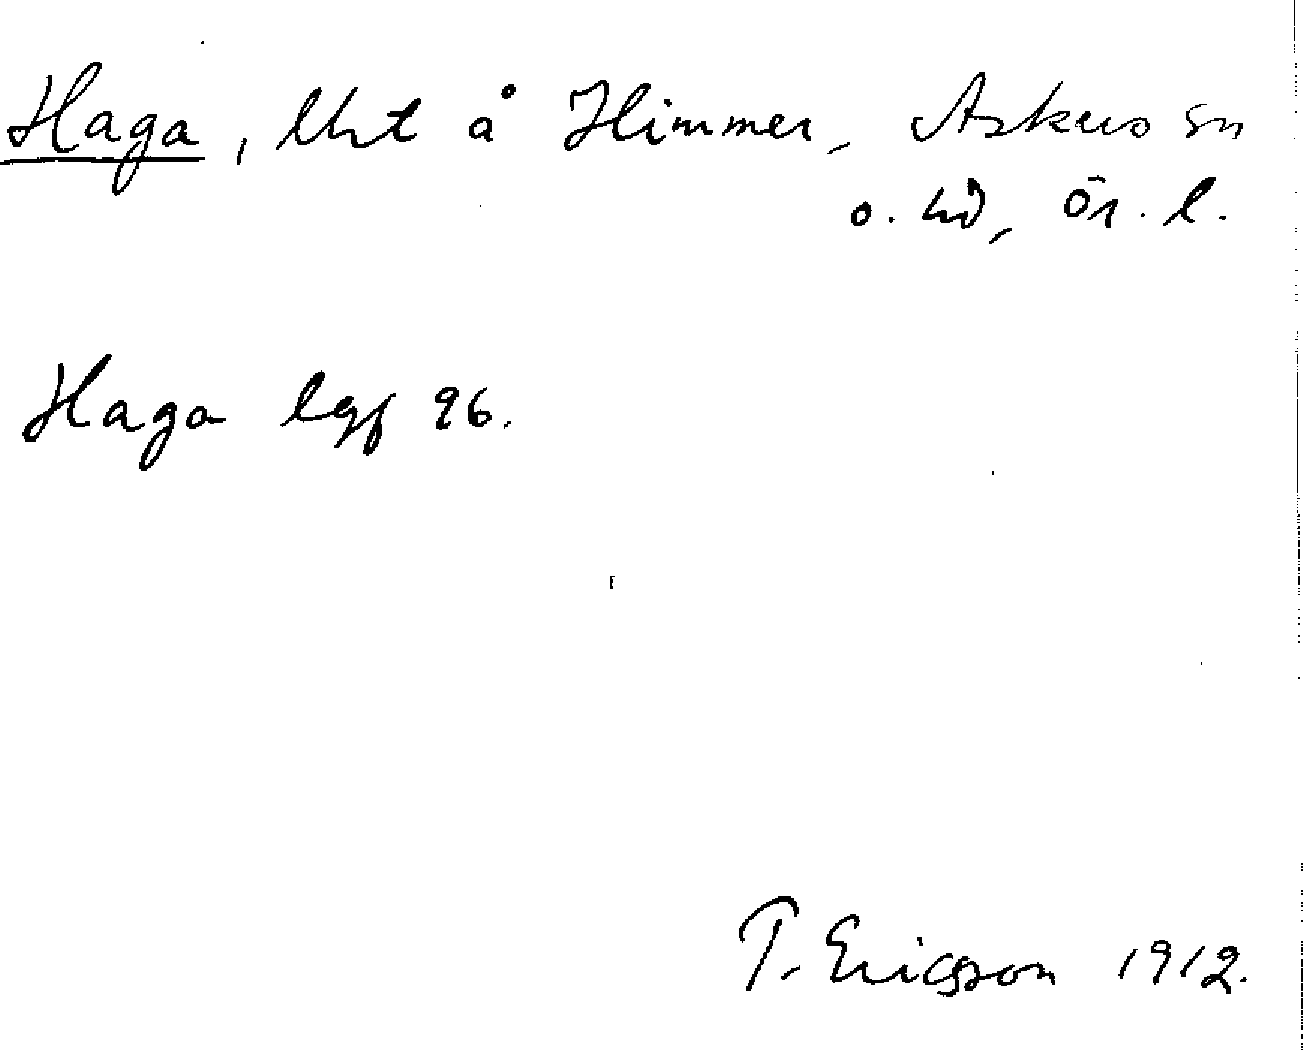 Haga, lht å Himmer, Askers sn
o. hd, Ör. l.
Haga lgf 96.
T. Ericsson 1912.